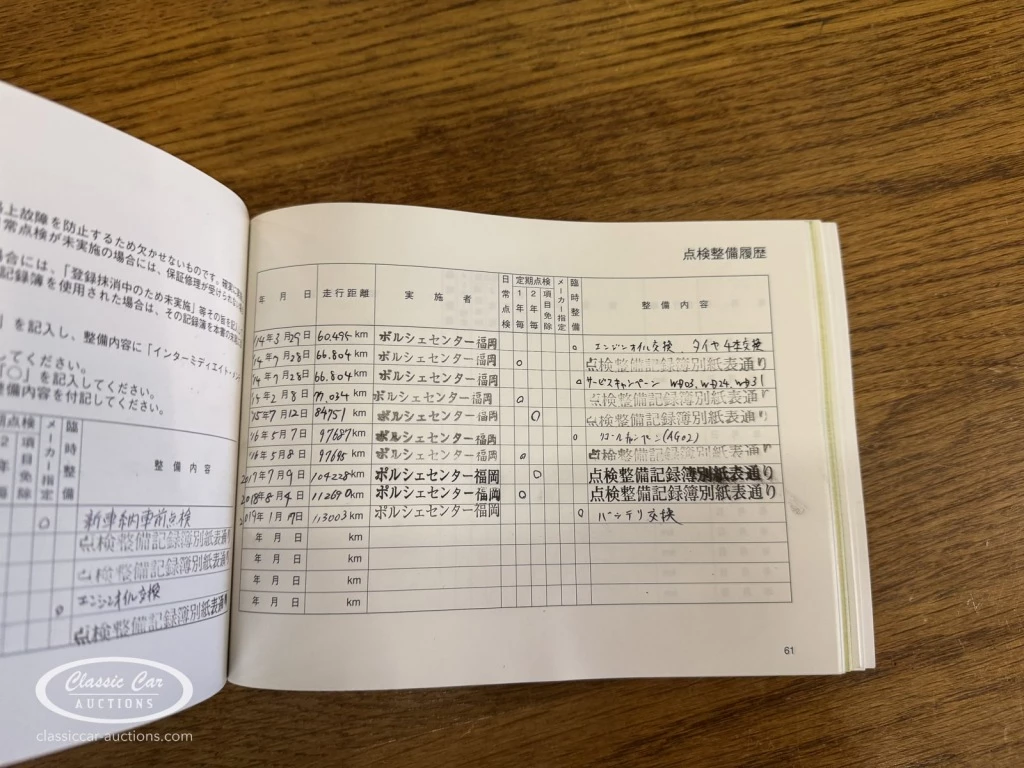 上故障を防止するため欠かせないものです。確実に
常点検が未実施の場合には、保証修理が受けられない
場合には、「登録抹消中のため未実施」等その旨を記入
記録簿を使用された場合は、その記録簿を本書の
を記入し、整備内容に「インターミディエイト・メン
してください。
「〇」を記入してください。
備内容を付記してください。
期点検 メーカー指定 臨時整備 整備内容
2年毎 項目免除
○ 新車納車前点検
点検整備記録簿別紙表通り
点検整備記録簿別紙表通り
○ エンジンオイル交換
点検整備記録簿別紙表通り
点検整備履歴
年 月 日 走行距離 実施者 日常点検 定期点検 1年毎 2年毎 項目免除 メーカー指定 臨時整備 整備内容
'14年3月29日 60.495km ポルシェセンター福岡 ○ エンジンオイル交換、タイヤ4本交換
'14年7月28日 66.804km ポルシェセンター福岡 ○ 点検整備記録簿別紙表通り
'14年7月28日 66.804km ポルシェセンター福岡 ○ サービスキャンペーン WD03, WD24, WD31
年2月8日 77,034km ポルシェセンター福岡 ○ 点検整備記録簿別紙表通り
'15年7月12日 84751km ポルシェセンター福岡 ○ 点検整備記録簿別紙表通り
'16年5月7日 97687km ポルシェセンター福岡 ○ リコールキャンペーン(AG02)
'16年5月8日 97695km ポルシェセンター福岡 ○ 点検整備記録簿別紙表通り
2017年7月9日 104228km ポルシェセンター福岡 ○ 点検整備記録簿別紙表通り
2018年8月4日 112690km ポルシェセンター福岡 ○ 点検整備記録簿別紙表通り
2019年1月7日 113003km ポルシェセンター福岡 ○ バッテリ交換
年 月 日 km
年 月 日 km
年 月 日 km
年 月 日 km
61
Classic Car
AUCTIONS
classiccar-auctions.com